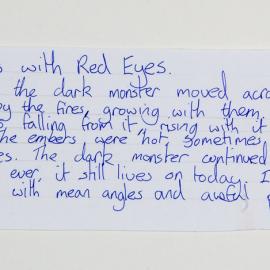 with Red Eyes.
the dark monster moved acro
by the fires, growing with them.
falling from it, rising with it
the embers were hot, sometimes
es. The dark monster continued
ever, it still lives on today. I
with mean angles and awful